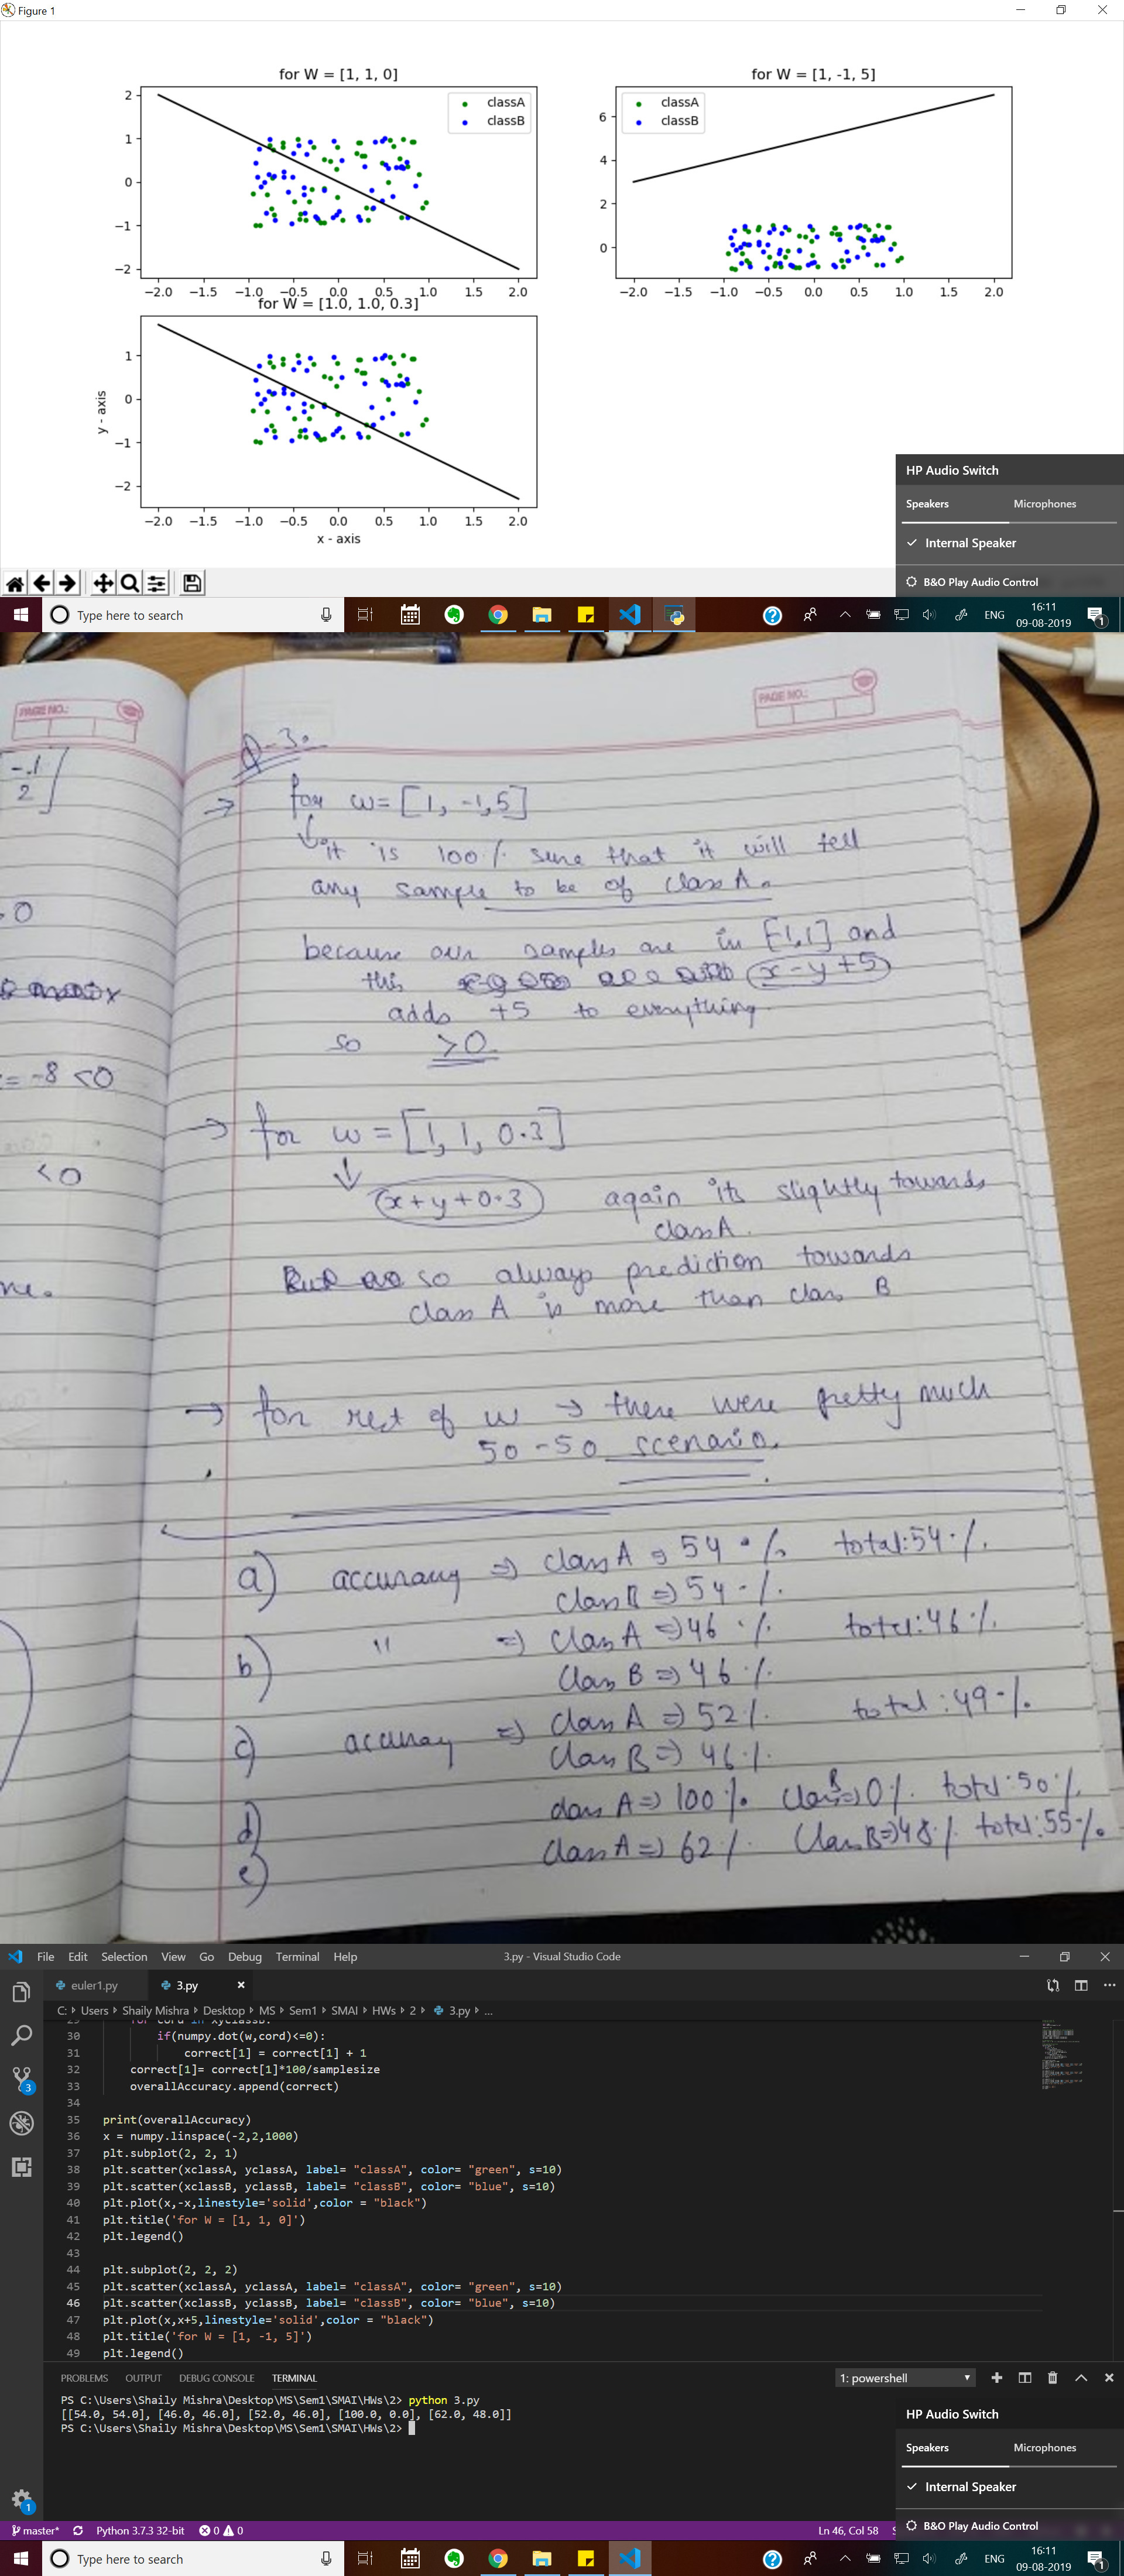 Figure 1
for W = [1, 1, 0]
2
1
0
−1
−2
−2.0 −1.5 −1.0 −0.5 0.0 0.5 1.0 1.5 2.0
classA
classB
for W = [1, -1, 5]
6
4
2
0
−2.0 −1.5 −1.0 −0.5 0.0 0.5 1.0 1.5 2.0
classA
classB
for W = [1.0, 1.0, 0.3]
1
0
−1
−2
y - axis
−2.0 −1.5 −1.0 −0.5 0.0 0.5 1.0 1.5 2.0
x - axis
HP Audio Switch
Speakers Microphones
Internal Speaker
B&O Play Audio Control
Type here to search
ENG
16:11
09-08-2019
1
PAGE NO.:
PAGE NO.:
-1
2
0
= -8 <0
<0
me.
Q-3.
→ for w = [1, -1, 5]
it is 100% sure that it will tell
any sample to be of class A.
because our samples are in [-1,1] and
this x-y+5
adds +5 to everything
so >0
→ for w = [1, 1, 0.3]
x+y+0.3 again its slightly towards
class A.
so always prediction towards
class A is more than class B
→ for rest of w → there were pretty much
50-50 scenario.
a) accuracy ⇒ class A ⇒ 54% total: 54%
class B ⇒ 54%
b) " ⇒ class A ⇒ 46% total: 46%
class B ⇒ 46%
c) accuray ⇒ class A ⇒ 52% total: 49%
class B ⇒ 46%
d) class A ⇒ 100% class B ⇒ 0% total: 50%
e) class A ⇒ 62% class B ⇒ 48% total: 55%
File Edit Selection View Go Debug Terminal Help
3.py - Visual Studio Code
euler1.py
3.py
C: Users Shaily Mishra Desktop MS Sem1 SMAI HWs 2 3.py ...
29 for cord in xyclassB:
30 if(numpy.dot(w,cord)<=0):
31 correct[1] = correct[1] + 1
32 correct[1]= correct[1]*100/samplesize
33 overallAccuracy.append(correct)
34
35 print(overallAccuracy)
36 x = numpy.linspace(-2,2,1000)
37 plt.subplot(2, 2, 1)
38 plt.scatter(xclassA, yclassA, label= "classA", color= "green", s=10)
39 plt.scatter(xclassB, yclassB, label= "classB", color= "blue", s=10)
40 plt.plot(x,-x,linestyle='solid',color = "black")
41 plt.title('for W = [1, 1, 0]')
42 plt.legend()
43
44 plt.subplot(2, 2, 2)
45 plt.scatter(xclassA, yclassA, label= "classA", color= "green", s=10)
46 plt.scatter(xclassB, yclassB, label= "classB", color= "blue", s=10)
47 plt.plot(x,x+5,linestyle='solid',color = "black")
48 plt.title('for W = [1, -1, 5]')
49 plt.legend()
3
1
PROBLEMS OUTPUT DEBUG CONSOLE TERMINAL
1: powershell
PS C:\Users\Shaily Mishra\Desktop\MS\Sem1\SMAI\HWs\2> python 3.py
[[54.0, 54.0], [46.0, 46.0], [52.0, 46.0], [100.0, 0.0], [62.0, 48.0]]
PS C:\Users\Shaily Mishra\Desktop\MS\Sem1\SMAI\HWs\2>
HP Audio Switch
Speakers Microphones
Internal Speaker
B&O Play Audio Control
master* Python 3.7.3 32-bit 0 0 Ln 46, Col 58
Type here to search
ENG
16:11
09-08-2019
1